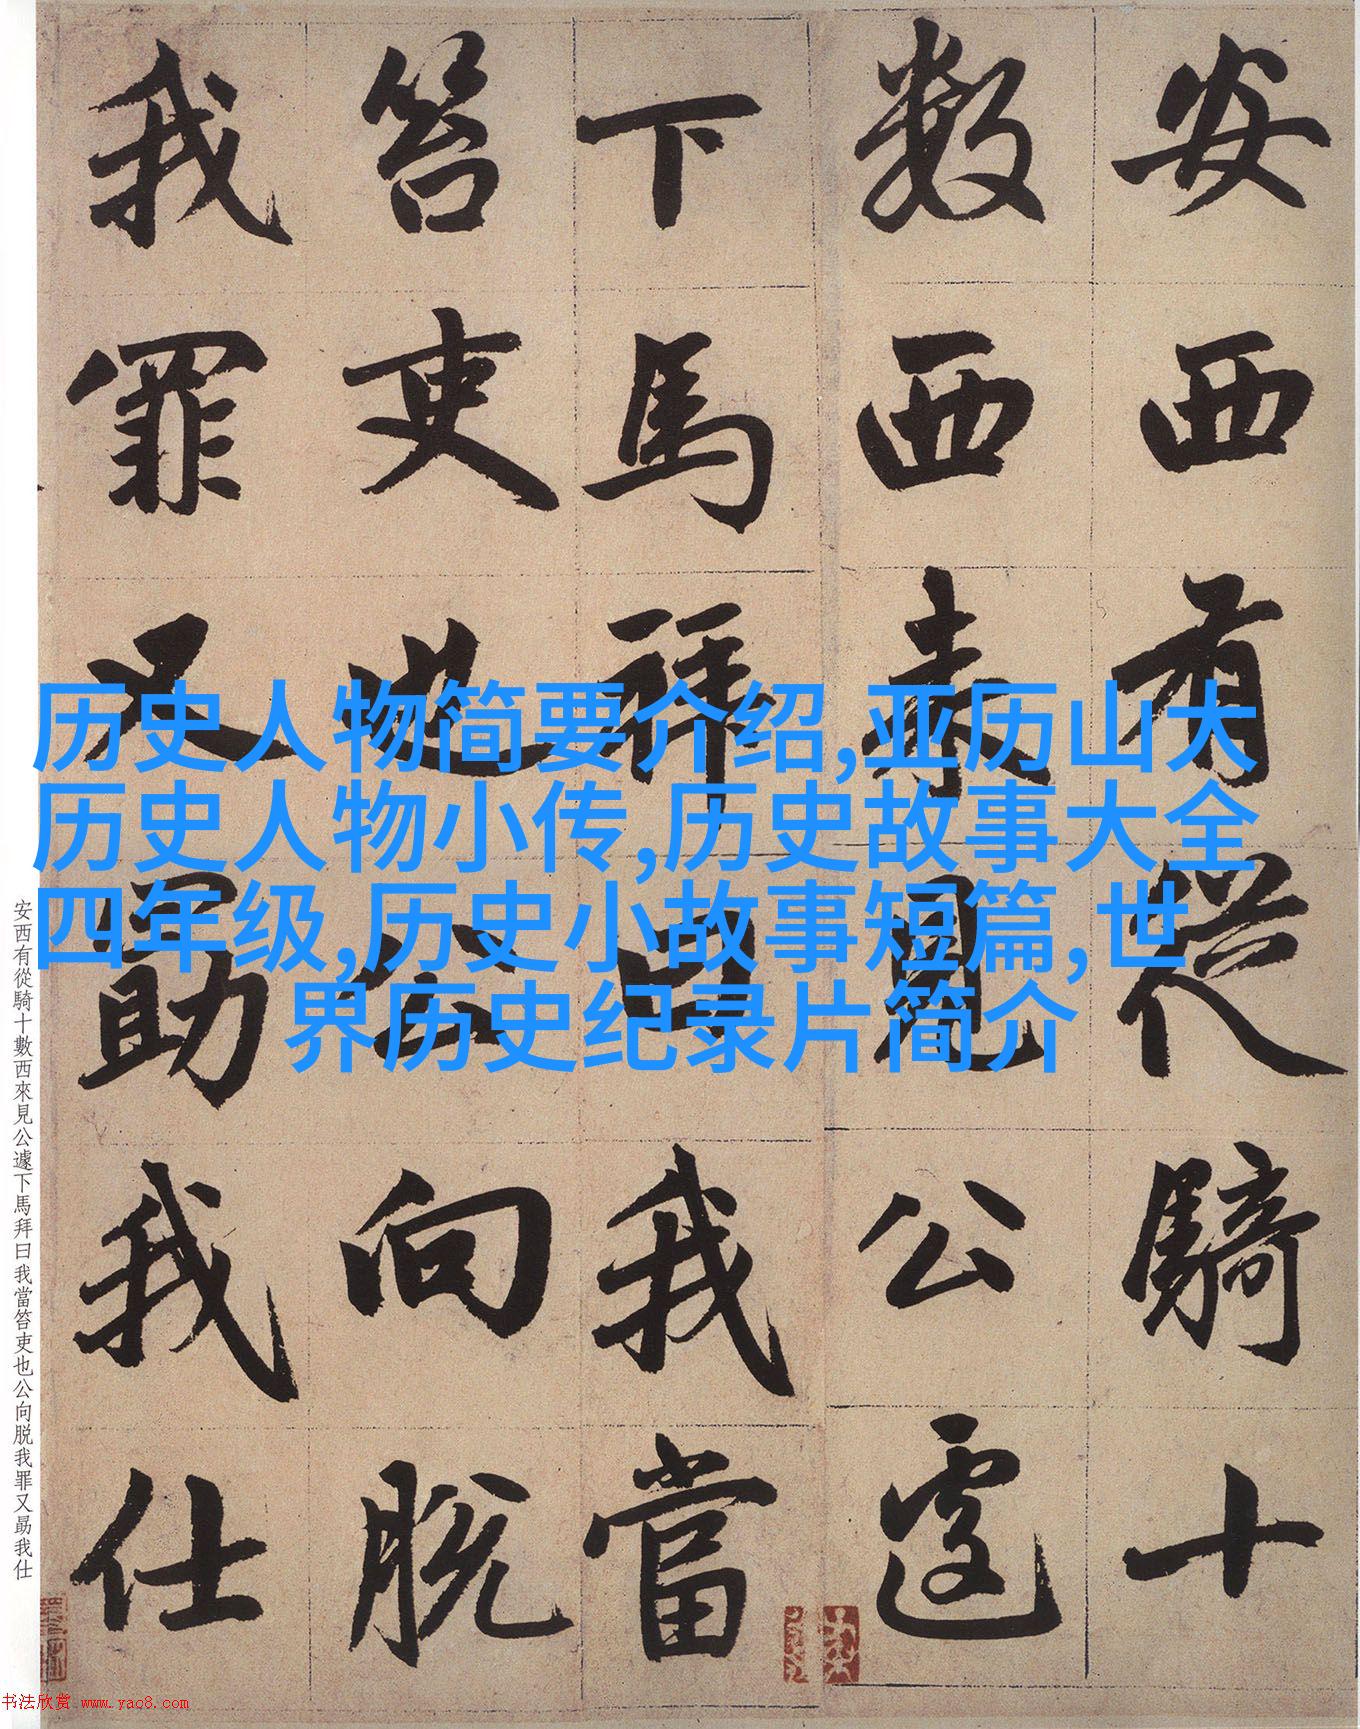 安西有從騎十
數西來見公遽
下馬拜曰我當
笞吏也公向脫
我罪又勗我仕
历史人物简要介绍,亚历山大
历史人物小传,历史故事大全
四年级,历史小故事短篇,世
界历史纪录片简介
安西有從騎十數西來見公遽下馬拜曰我當笞吏也公向脱我罪又勗我仕
书法欣赏 www.yac8.com